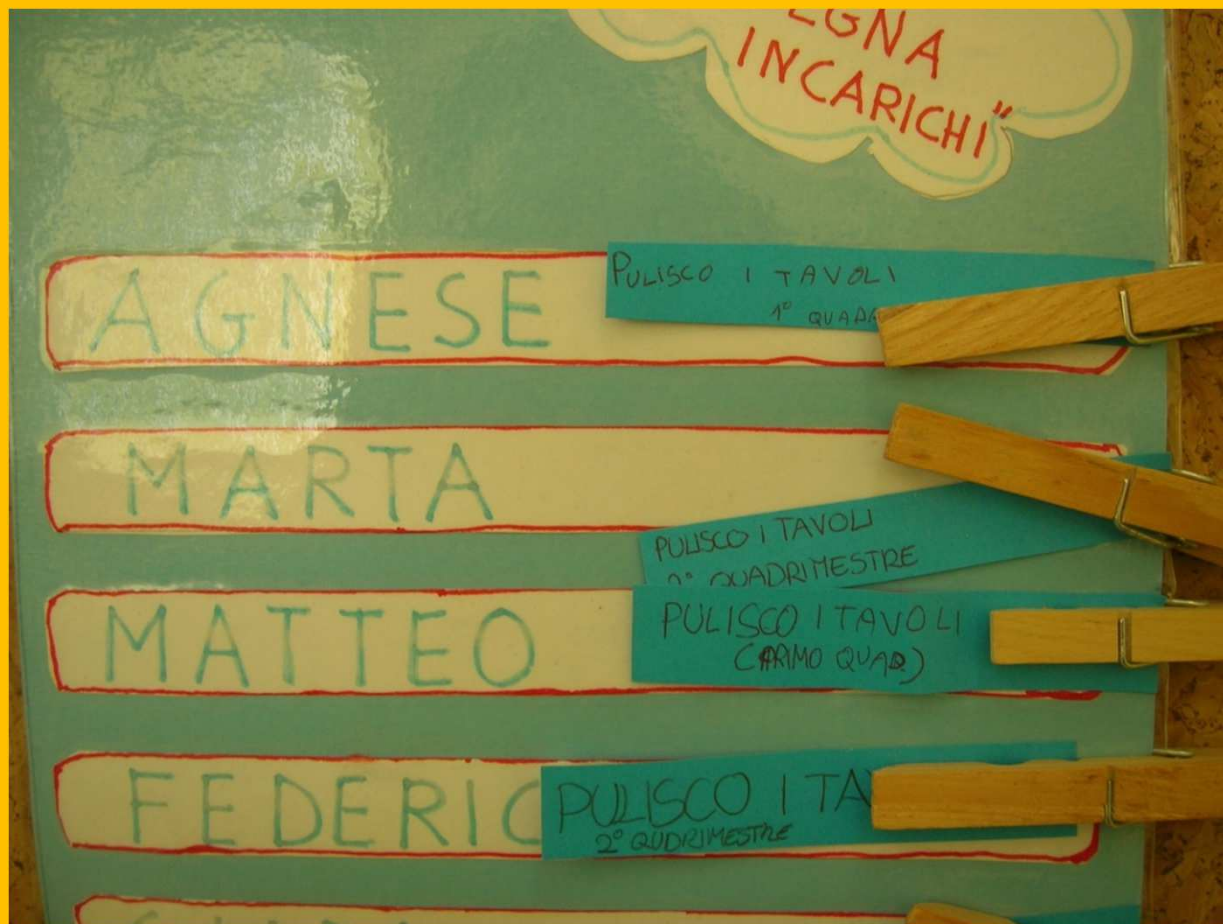 EGNA
INCARICHI"
AGNESE
PULISCO I TAVOLI
1° QUADR
MARTA
PULISCO I TAVOLI
2° QUADRIMESTRE
MATTEO
PULISCO I TAVOLI
(PRIMO QUAD)
FEDERIC
PULISCO I TA
2° QUDRIMESTRE